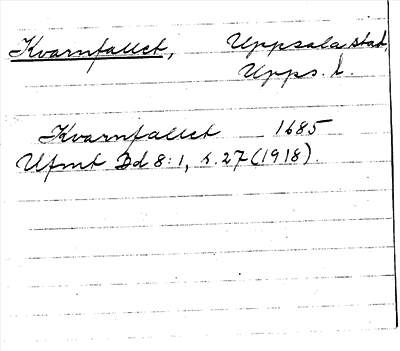 Kvarnfallet, Uppsala stad,
Upps. l.
Kvarnfallet 1685
Ufmt Dd 8:1, s. 27 (1918).